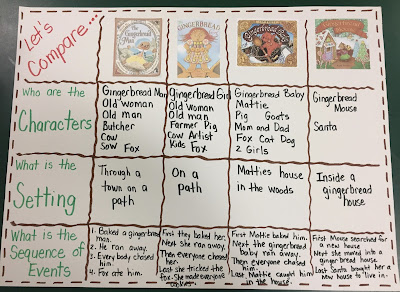 Let's
Compare...
The
Gingerbread
Man
GINGERBREAD
Gingerbread
Who are the
Characters
Gingerbread Man
Old woman
Old man
Butcher
Cow
Sow Fox
Gingerbread Girl
Old woman
Old man
Farmer Pig
Cow Artist
Kids Fox
Gingerbread Baby
Mattie
Pig Goats
Mom and Dad
Fox Cat Dog
2 Girls
Gingerbread
Mouse
Santa
What is the
Setting
Through a
town on a
path
On a
path
Matties house
in the woods
Inside a
gingerbread
house
What is the
Sequence
of Events
1. Baked a gingerbread
man.
2. He ran away.
3. Every body chased
him.
4. Fox ate him.
First they baked her.
Next she ran away.
Then everyone chased
her.
Last she tricked the
fox. She made everyone
cakes.
First Mattie baked him.
Next the gingerbread
baby ran away.
Then everyone chased
him.
Last Mattie caught him
in the house.
First Mouse searched for
a new house
Next she moved into a
gingerbread house.
Last Santa brought her a
new house to live in.